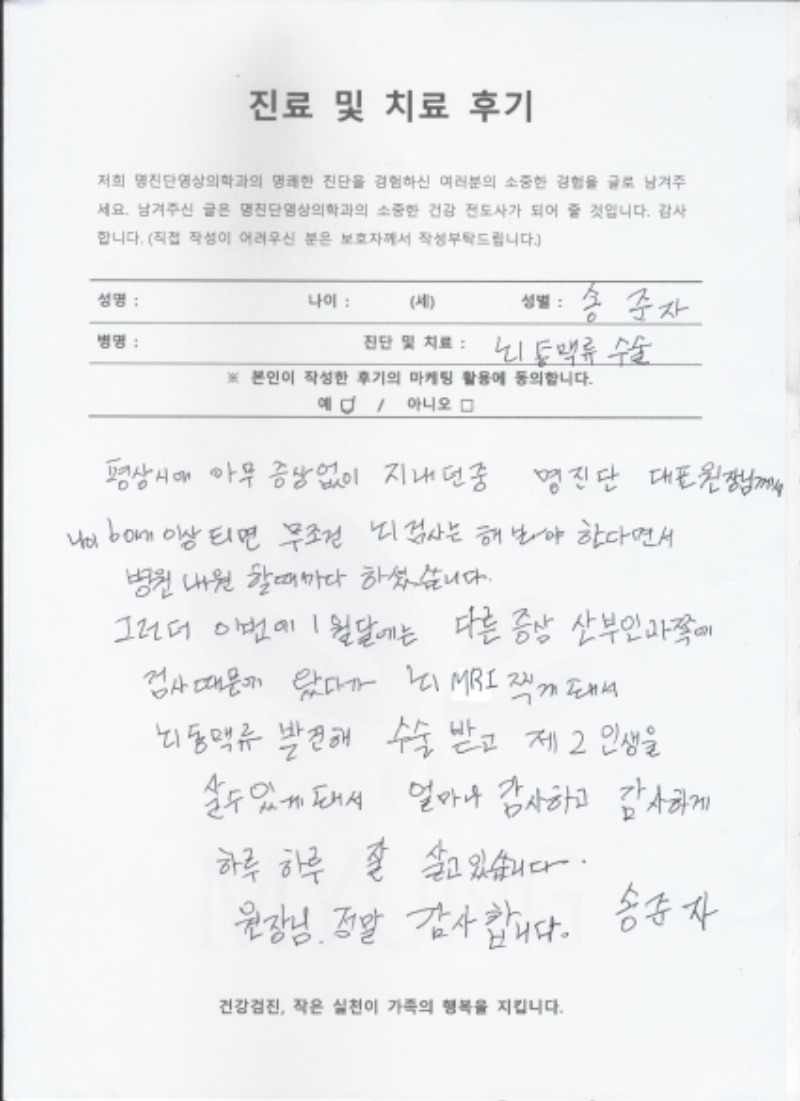 진료 및 치료 후기
저희 명진단영상의학과의 명쾌한 진단을 경험하신 여러분의 소중한 경험을 글로 남겨주
세요. 남겨주신 글은 명진단영상의학과의 소중한 건강 전도사가 되어 줄 것입니다. 감사
합니다. (직접 작성이 어려우신 분은 보호자께서 작성부탁드립니다.)
성명 : 나이 : (세) 성별 : 송 준 자
병명 : 진단 및 치료 : 뇌동맥류 수술
※ 본인이 작성한 후기의 마케팅 활용에 동의합니다.
예 ☑ / 아니오 □
평상시에 아무 증상없이 지내던중 명진단 대표원장님께서
나이 60세 이상 되면 무조건 뇌 검사는 해 봐야 한다면서
병원 내원 할때마다 하셨습니다.
그런더 이번에 1월달에는 다른 증상 산부인과쪽에
검사때문에 왔다가 뇌 MRI 찍게 돼서
뇌동맥류 발견해 수술 받고 제 2 인생을
살수 있게 돼서 얼마나 감사하고 감사하게
하루 하루 잘 살고 있습니다.
원장님. 정말 감사합니다. 송준자
건강검진, 작은 실천이 가족의 행복을 지킵니다.